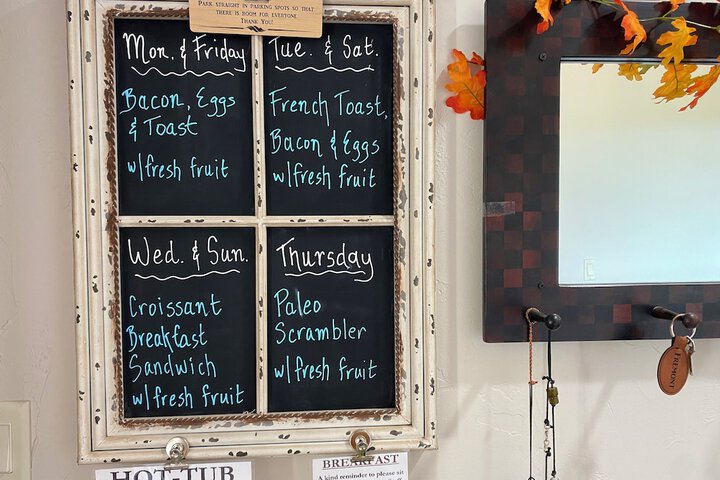 PARK IN PARKING SPOTS SO THAT
THERE IS ROOM FOR EVERYONE
THANK YOU!
Mon. & Friday
Bacon, Eggs
& Toast
w/fresh fruit
Tue. & Sat.
French Toast,
Bacon & Eggs
w/fresh fruit
Wed. & Sun.
Croissant
Breakfast
Sandwich
w/fresh fruit
Thursday
Paleo
Scrambler
w/fresh fruit
FREMONT
HOT-TUB
BREAKFAST
A kind reminder to please sit